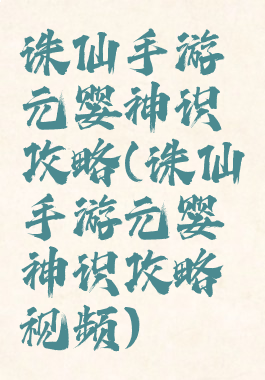 诛仙手游
元婴神识
攻略(诛仙
手游元婴
神识攻略
视频)